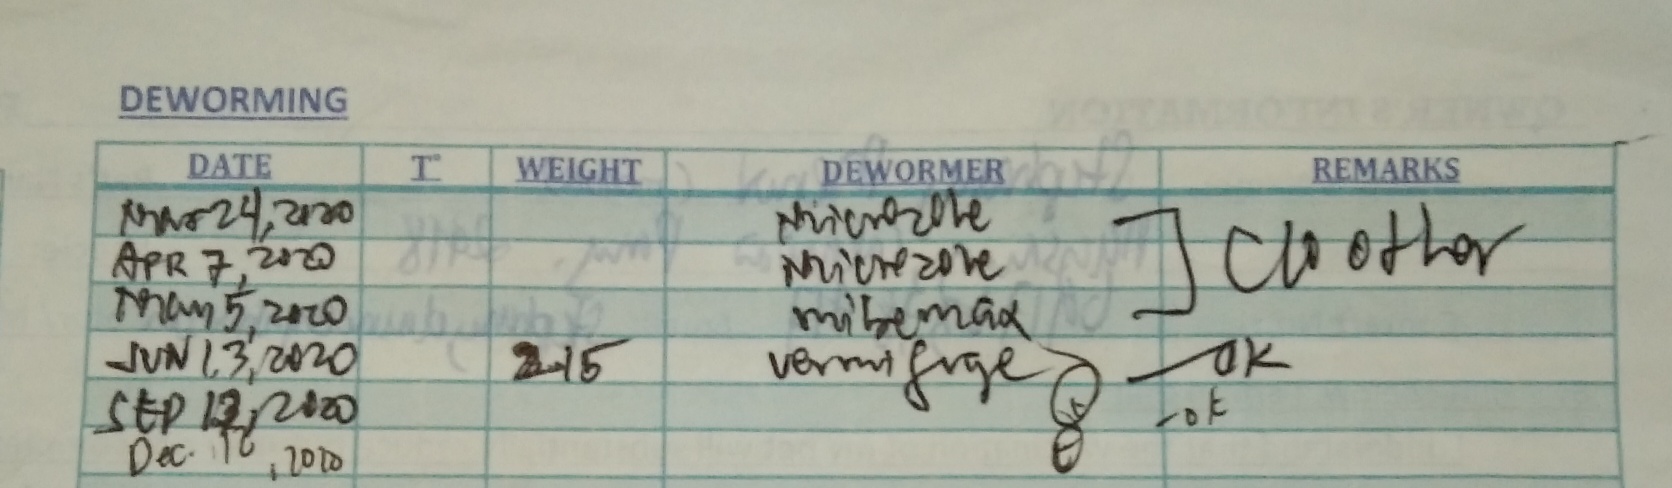 DEWORMING
DATE T° WEIGHT DEWORMER REMARKS
Mar 24, 2020 Microzole
APR 7, 2020 Microzole C/o other
May 5, 2020 mibemax
JUN 13, 2020 2.15 vermifuge OK
SEP 12, 2020 -ok
Dec. 2020